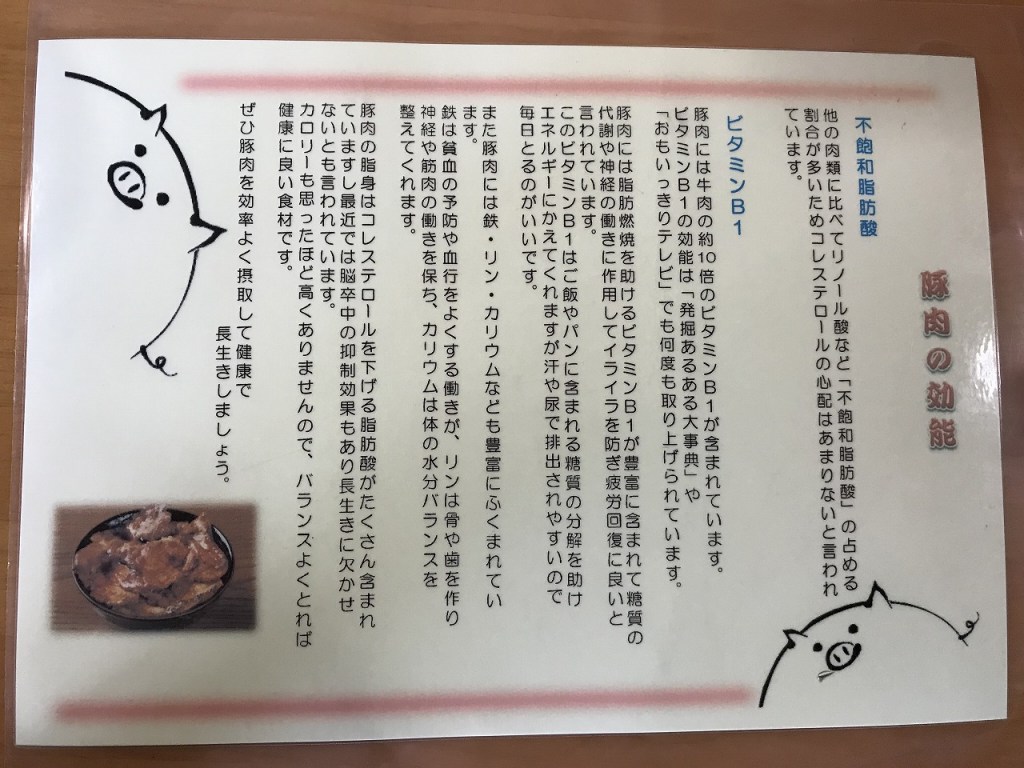 豚肉の効能
不飽和脂肪酸
他の肉類に比べてリノール酸など「不飽和脂肪酸」の占める
割合が多いためコレステロールの心配はあまりないと言われ
ています。
ビタミンB1
豚肉には牛肉の約10倍のビタミンB1が含まれています。
ビタミンB1の効能は「発掘あるある大事典」や
「おもいっきりテレビ」でも何度も取り上げられています。
豚肉には脂肪燃焼を助けるビタミンB1が豊富に含まれて糖質の
代謝や神経の働きに作用してイライラを防ぎ疲労回復に良いと
言われています。
このビタミンB1はご飯やパンに含まれる糖質の分解を助け
エネルギーにかえてくれますが汗や尿で排出されやすいので
毎日とるのがいいです。
また豚肉には鉄・リン・カリウムなども豊富にふくまれてい
ます。
鉄は貧血の予防や血行をよくする働きが、リンは骨や歯を作り
神経や筋肉の働きを保ち、カリウムは体の水分バランスを
整えてくれます。
豚肉の脂身はコレステロールを下げる脂肪酸がたくさん含まれ
ていますし最近では脳卒中の抑制効果もあり長生きに欠かせ
ないとも言われています。
カロリーも思ったほど高くありませんので、バランスよくとれば
健康に良い食材です。
ぜひ豚肉を効率よく摂取して健康で
長生きしましょう。